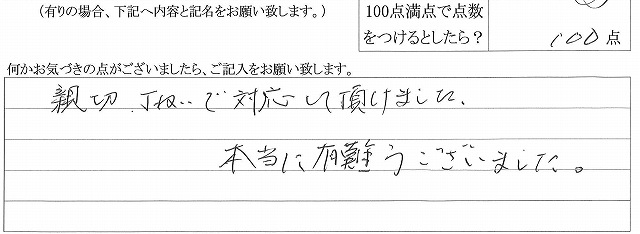 (有りの場合、下記へ内容と記名をお願い致します。)
100点満点で点数
をつけるとしたら？
100点
何かお気づきの点がございましたら、ご記入をお願い致します。
親切、丁ねいで対応して頂けました、
本当に有難うございました。